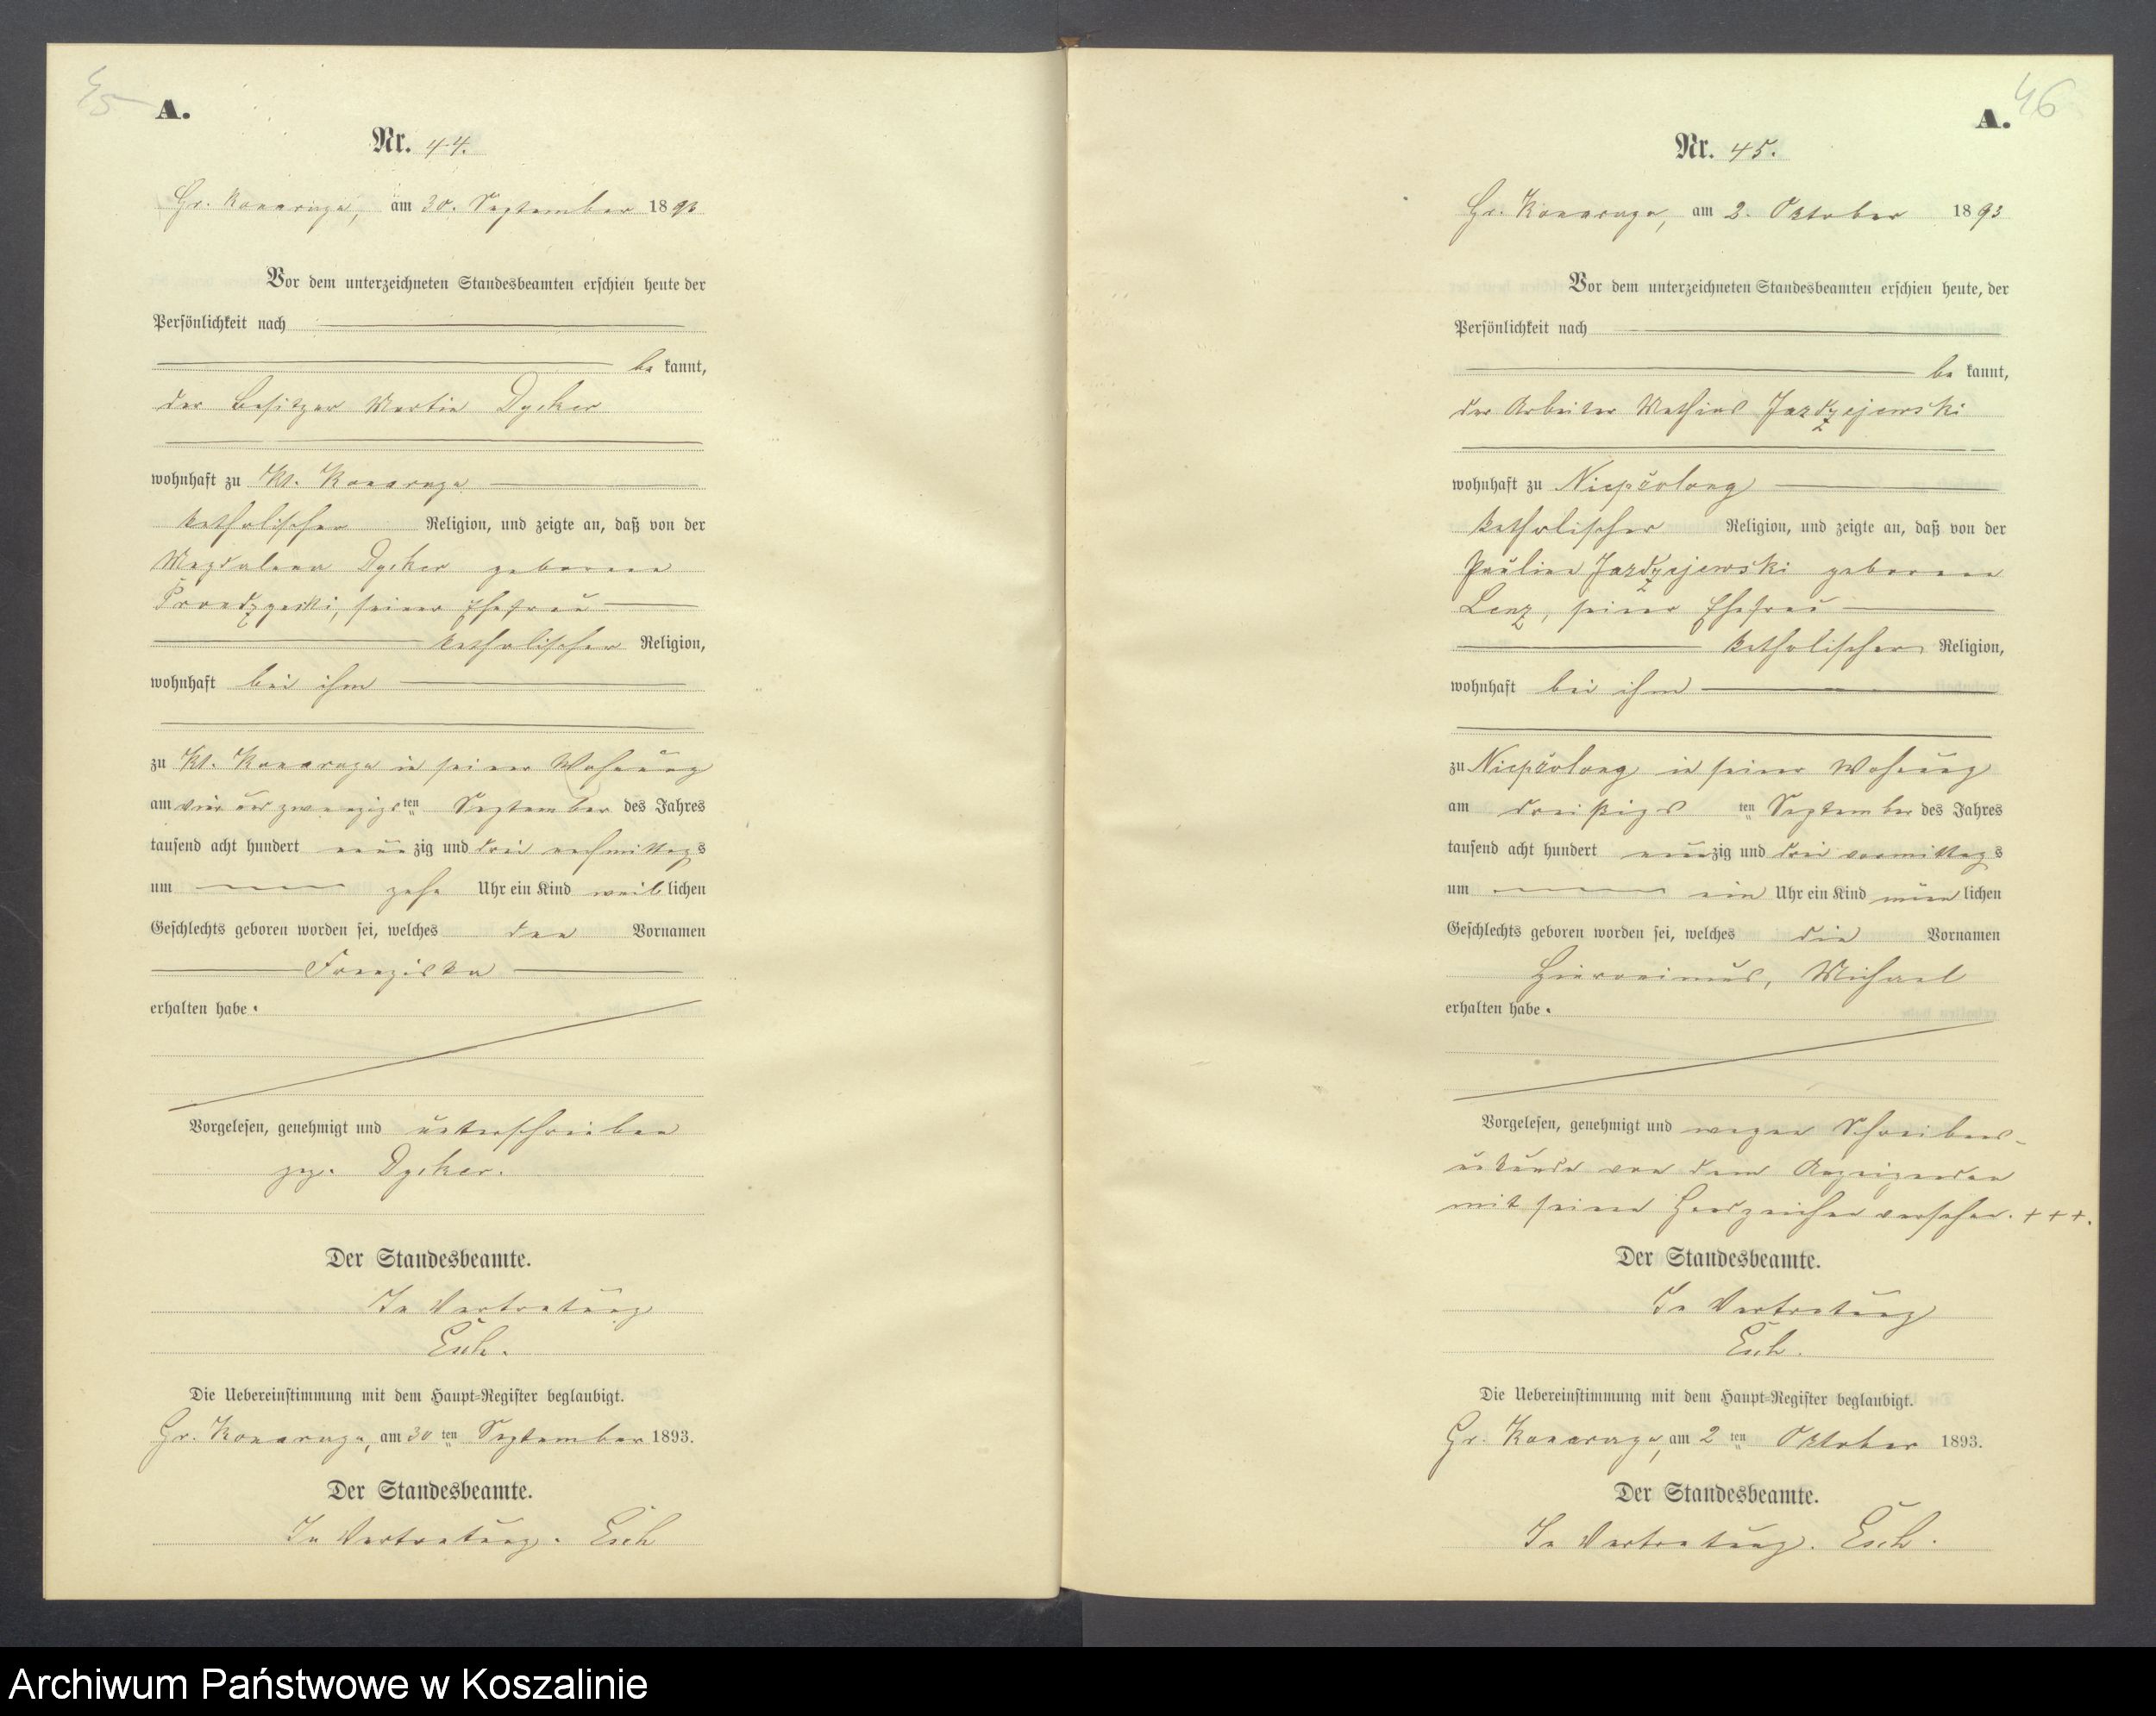 45
A.
Nr. 44.
Gr. Konarzyn, am 30. September 1893
Vor dem unterzeichneten Standesbeamten erschien heute der
Persönlichkeit nach
be kannt,
der Besitzer Martin Dycker
wohnhaft zu Kl. Konarzyn
katholischer Religion, und zeigte an, daß von der
Magdalena Dycker geborene
seiner Ehefrau
katholischer Religion,
wohnhaft bei ihm
zu Kl. Konarzyn in seiner Wohnung
am vier und zwanzigs ten September des Jahres
tausend acht hundert neun zig und drei nachmittag s
um zehn Uhr ein Kind weib lichen
Geschlechts geboren worden sei, welches den Vornamen
Franziska
erhalten habe.
Vorgelesen, genehmigt und unterschrieben
gez. Dycker.
Der Standesbeamte.
In Vertretung
Esch.
Die Uebereinstimmung mit dem Haupt-Register beglaubigt.
Gr. Konarzyn, am 30 ten September 1893.
Der Standesbeamte.
In Vertretung. Esch
46
A.
Nr. 45.
Gr. Konarzyn, am 2. Oktober 1893
Vor dem unterzeichneten Standesbeamten erschien heute, der
Persönlichkeit nach
be kannt,
der Arbeiter Mathias Jazdzejewski
wohnhaft zu Niepszolong
katholischer Religion, und zeigte an, daß von der
Pauline Jazdzejewski geborene
Lenz, seiner Ehefrau
katholischer Religion,
wohnhaft bei ihm
zu Niepszolong in seiner Wohnung
am dreißigs ten September des Jahres
tausend acht hundert neun zig und drei vormittag s
um ein Uhr ein Kind männ lichen
Geschlechts geboren worden sei, welches die Vornamen
Hieronimus, Michael
erhalten habe.
Vorgelesen, genehmigt und wegen Schreibens-
unkunde von dem Anzeigenden
mit seinen Handzeichen versehen. +++.
Der Standesbeamte.
In Vertretung
Esch.
Die Uebereinstimmung mit dem Haupt-Register beglaubigt.
Gr. Konarzyn, am 2 ten Oktober 1893.
Der Standesbeamte.
In Vertretung. Esch.
Archiwum Państwowe w Koszalinie